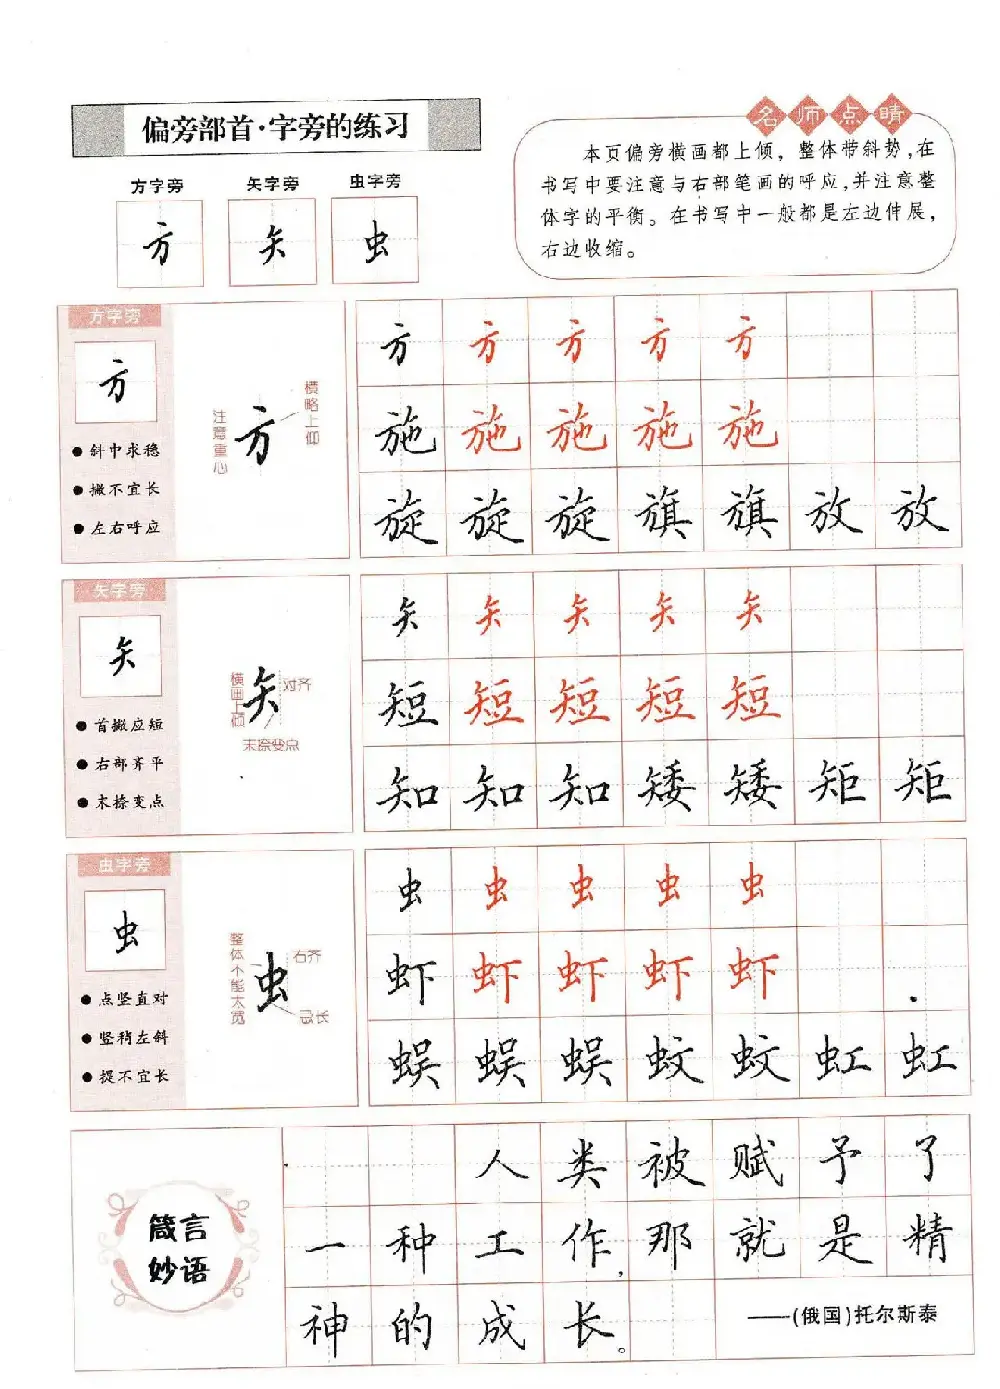 偏旁部首·字旁的练习
名师点睛
本页偏旁横画都上倾，整体带斜势,在
书写中要注意与右部笔画的呼应,并注意整
体字的平衡。在书写中一般都是左边伸展，
右边收缩。
方字旁 矢字旁 虫字旁
方 矢 虫
方字旁
方
斜中求稳
撇不宜长
左右呼应
注意重心
方
横略上仰
方 方 方 方 方
施 施 施 施 施
旋 旋 旋 旗 旗 放 放
矢字旁
矢
首撇应短
右部齐平
末捺变点
横画上倾
矢
对齐
末捺变点
矢 矢 矢 矢 矢
短 短 短 短 短
知 知 知 矮 矮 矩 矩
虫字旁
虫
点竖直对
竖稍左斜
提不宜长
整体不能太宽
虫
右齐
忌长
虫 虫 虫 虫 虫
虾 虾 虾 虾 虾
蜈 蜈 蜈 蚊 蚊 虹 虹
箴言
妙语
人类被赋予了
一种工作，那就是精
神的成长。
——(俄国)托尔斯泰